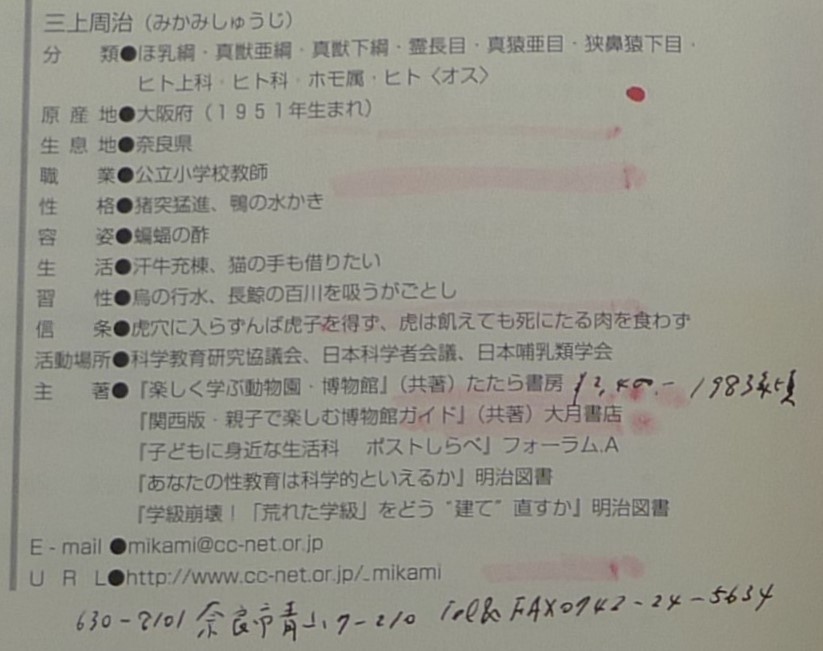 三上周治（みかみしゅうじ）
分類●ほ乳綱・真獣亜綱・真獣下綱・霊長目・真猿亜目・狭鼻猿下目・
ヒト上科・ヒト科・ホモ属・ヒト〈オス〉
原産地●大阪府（１９５１年生まれ）
生息地●奈良県
職業●公立小学校教師
性格●猪突猛進、鴨の水かき
容姿●蝙蝠の酢
生活●汗牛充棟、猫の手も借りたい
習性●烏の行水、長鯨の百川を吸うがごとし
信条●虎穴に入らずんば虎子を得ず、虎は飢えても死にたる肉を食わず
活動場所●科学教育研究協議会、日本科学者会議、日本哺乳類学会
主著●『楽しく学ぶ動物園・博物館』（共著）たたら書房 1983年頃
『関西版・親子で楽しむ博物館ガイド』（共著）大月書店
『子どもに身近な生活科　ポストしらべ』フォーラム.A
『あなたの性教育は科学的といえるか』明治図書
『学級崩壊！「荒れた学級」をどう"建て"直すか』明治図書
E-mail●mikami@cc-net.or.jp
URL●http://www.cc-net.or.jp/_mikami
630-8101 奈良市青山7-210 Tel& FAX0742-24-5634